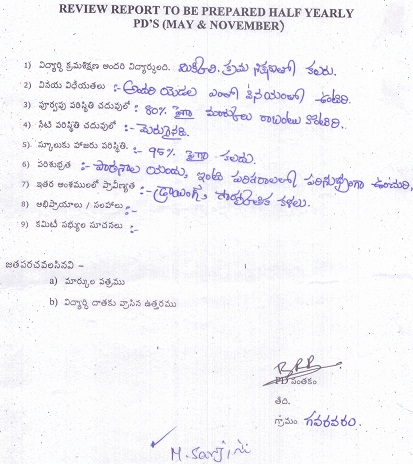 REVIEW REPORT TO BE PREPARED HALF YEARLY
PD'S (MAY & NOVEMBER)
1) విద్యార్థి క్రమశిక్షణ అందరి విద్యార్థులది. మిక్కిలి. క్రమ శిక్షణలో కలరు.
2) వినయ విధేయతలు :- అందరి యెడల ఎంతో వినయంలో ఉంటారి.
3) పూర్వపు పరిస్థితి చదువులో : 80% పైగా మార్కులు రాబంటు కొంటారి.
4) నేటి పరిస్థితి చదువులో :- మెరుగైనది.
5) స్కూలుకు హాజరు పరిస్థితి. :- 95% పైగా కలదు.
6) పరిశుభ్రత :- పాఠశాల యందు, ఇంటి పరిసరాలలో పరిశుభ్రంగా ఉండురి,
7) ఇతర అంశములలో ప్రావీణ్యత :- డ్రాయింగ్స్, కళలు.
8) అభిప్రాయాలు / సలహాలు :-
9) కమిటీ సభ్యుల సూచనలు :-
జతపరచవలసినవి –
a) మార్కుల పత్రము
b) విద్యార్థి దాతకు వ్రాసిన ఉత్తరము
PD సంతకం
తేది.
గ్రామం గవరవరం.
M. Sarjini